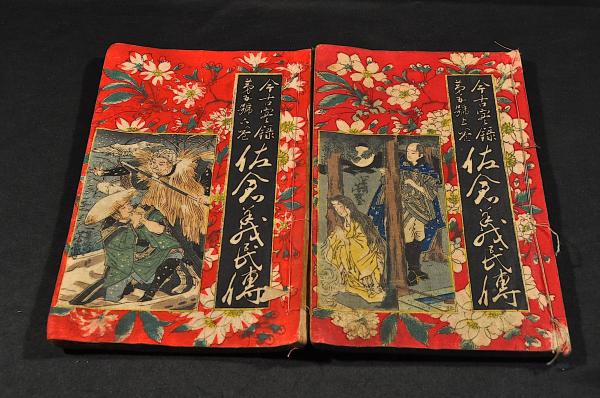 今古實録
第五號上巻
佐倉義民傳
今古實録
第五號下巻
佐倉義民傳